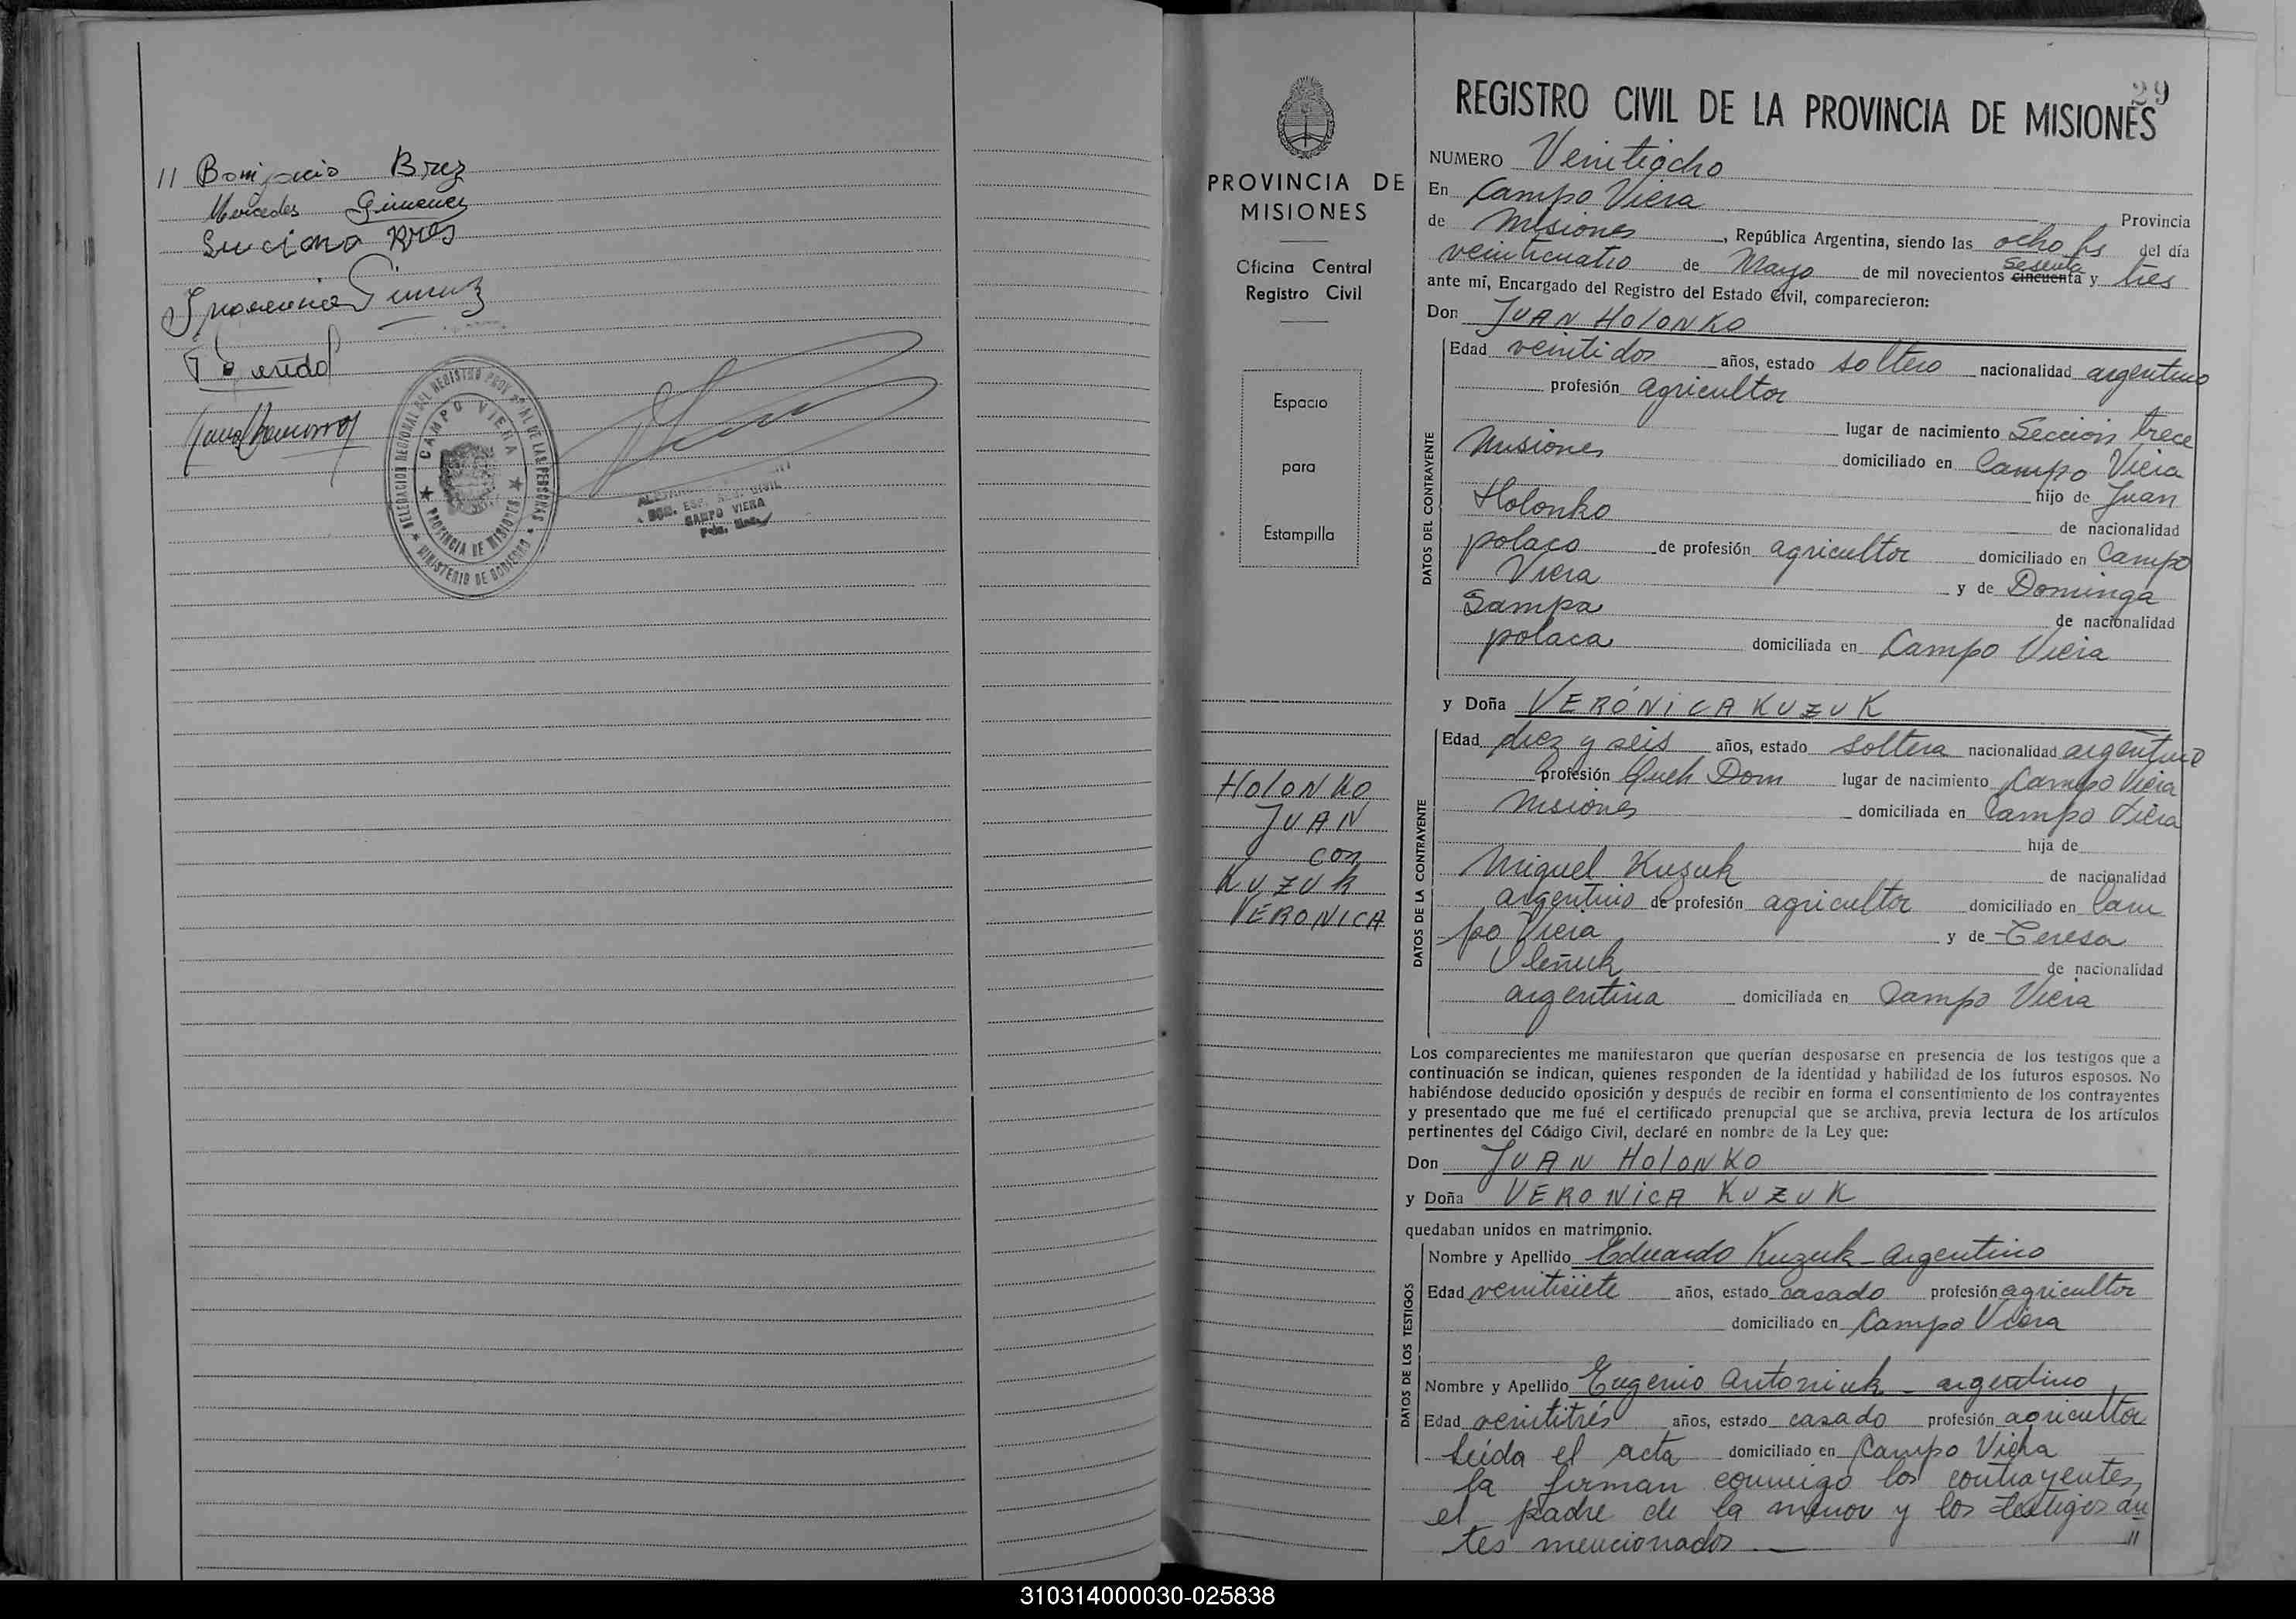 // Bonifacio Brez
Mercedes Gimenez
Luciana Bres
Gimenez
DELEGACION REGIONAL DEL REGISTRO PROV. DE LAS PERSONAS
CAMPO VIERA
PROVINCIA DE MISIONES
MINISTERIO DE GOBIERNO
CIVIL
CAMPO VIERA
29
PROVINCIA DE
MISIONES
Oficina Central
Registro Civil
Espacio
para
Estampilla
HOLONKO
JUAN
con
KUZUK
VERONICA
REGISTRO CIVIL DE LA PROVINCIA DE MISIONES
NUMERO Veintiocho
En Campo Viera
Provincia
de Misiones, República Argentina, siendo las ocho hs del día
veinticuatro de Mayo de mil novecientos cincuenta sesenta y tres
ante mí, Encargado del Registro del Estado Civil, comparecieron:
Don JUAN HOLONKO
DATOS DEL CONTRAYENTE
Edad veintidos años, estado soltero nacionalidad argentino
profesión agricultor
lugar de nacimiento Sección trece
Misiones domiciliado en Campo Viera
hijo de Juan
Holonko de nacionalidad
polaco de profesión agricultor domiciliado en Campo
Viera y de Dominga
Sampa de nacionalidad
polaca domiciliada en Campo Viera
y Doña VERÓNICA KUZUK
DATOS DE LA CONTRAYENTE
Edad diez y seis años, estado soltera nacionalidad argentina
profesión Queh Dom lugar de nacimiento Campo Viera
Misiones domiciliada en Campo Viera
hija de
Miguel Kuzuk de nacionalidad
argentino de profesión agricultor domiciliado en Cam
po Viera y de Teresa
Oleñuck de nacionalidad
argentina domiciliada en Campo Viera
Los comparecientes me manifestaron que querían desposarse en presencia de los testigos que a
continuación se indican, quienes responden de la identidad y habilidad de los futuros esposos. No
habiéndose deducido oposición y después de recibir en forma el consentimiento de los contrayentes
y presentado que me fué el certificado prenupcial que se archiva, previa lectura de los artículos
pertinentes del Código Civil, declaré en nombre de la Ley que:
Don JUAN HOLONKO
y Doña VERONICA KUZUK
quedaban unidos en matrimonio.
DATOS DE LOS TESTIGOS
Nombre y Apellido Eduardo Kuzuk - argentino
Edad veintisiete años, estado casado profesión agricultor
domiciliado en Campo Viera
Nombre y Apellido Eugenio Antoniuk - argentino
Edad veintitrés años, estado casado profesión agricultor
Leída el acta domiciliado en Campo Viera
la firman conmigo los contrayentes,
el padre de la menor y los testigos an
tes mencionados //
310314000030-025838